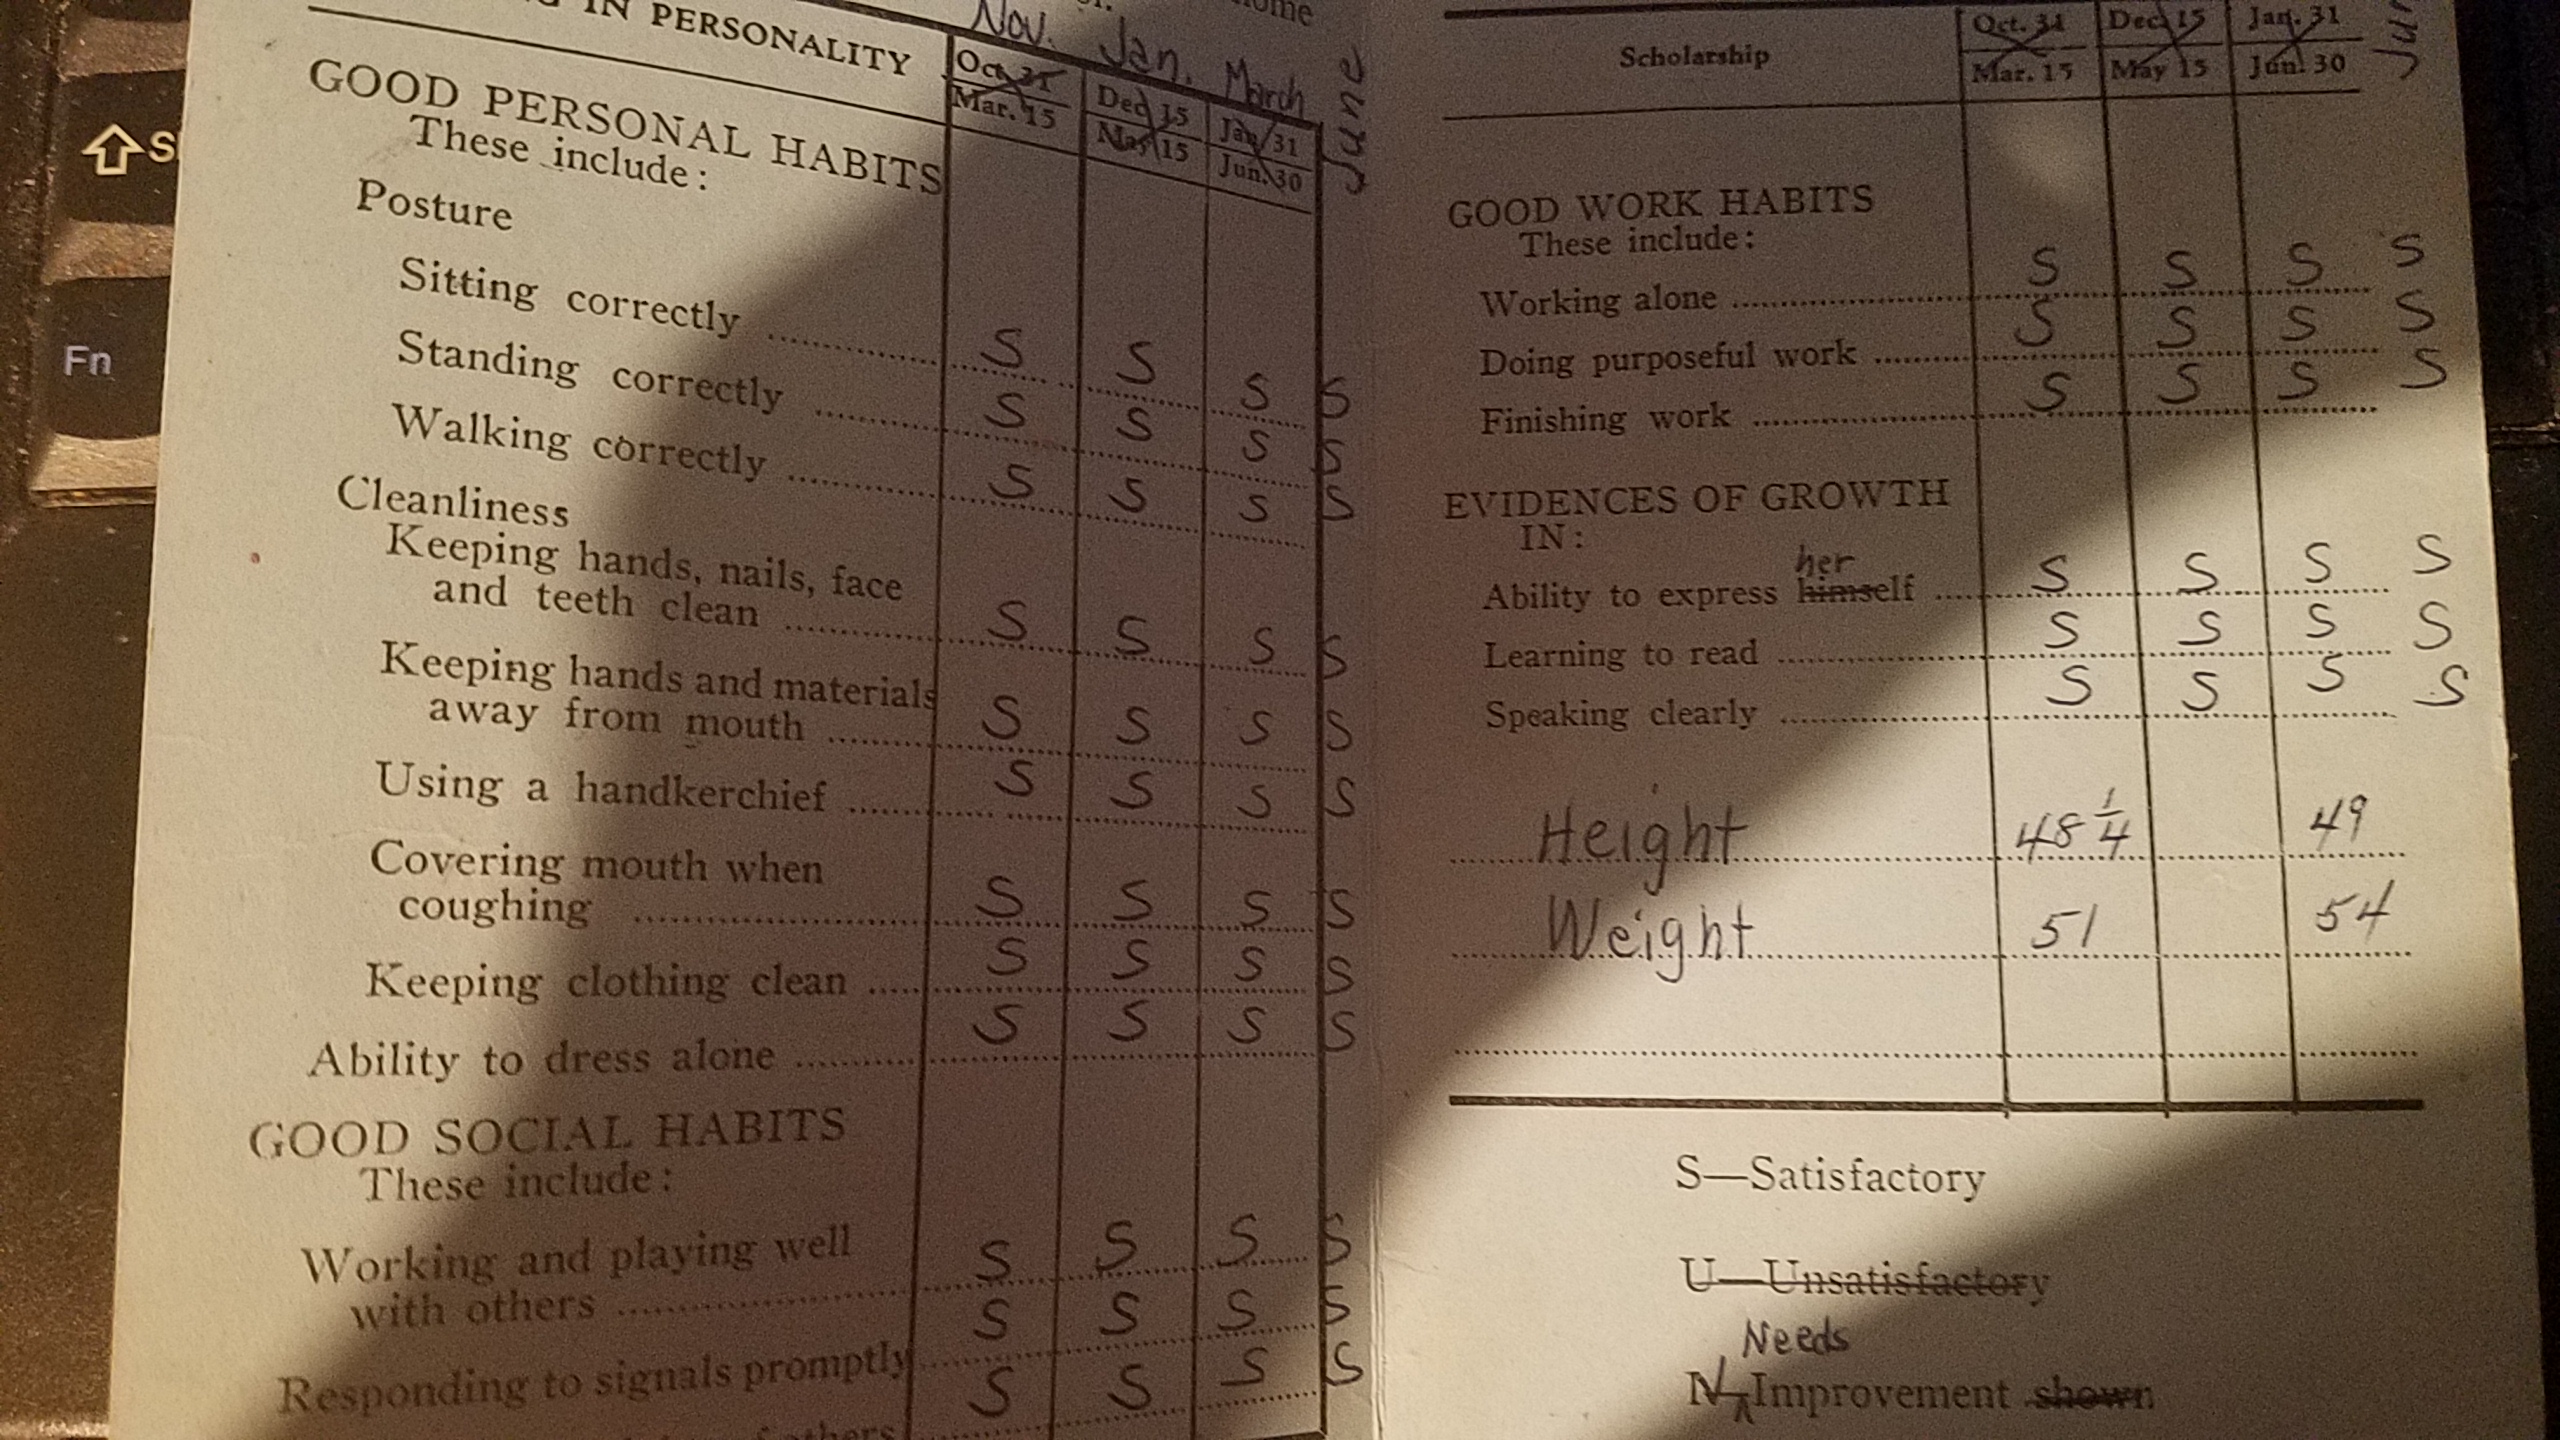 IN PERSONALITY
Nov. Jan. March June
Oct. 31 Dec 15 Jan. 31
Mar. 15 May 15 Jun. 30
GOOD PERSONAL HABITS
These include:
Posture
Sitting correctly S S S S
Standing correctly S S S S
Walking correctly S S S S
Cleanliness
Keeping hands, nails, face
and teeth clean S S S S
Keeping hands and materials
away from mouth S S S S
Using a handkerchief S S S S
Covering mouth when
coughing S S S S
Keeping clothing clean S S S S
Ability to dress alone S S S S
GOOD SOCIAL HABITS
These include:
Working and playing well
with others S S S S
Responding to signals promptly S S S S
S S S S
Scholarship
Oct. 31 Dec 15 Jan. 31
Mar. 15 May 15 Jun. 30
GOOD WORK HABITS
These include:
Working alone S S S S
Doing purposeful work S S S S
Finishing work S S S S
EVIDENCES OF GROWTH
IN:
her
Ability to express himself S S S S
Learning to read S S S S
Speaking clearly S S S S
Height 48 1/4 49
Weight 51 54
S—Satisfactory
U—Unsatisfactory
Needs
Improvement shown
Fn